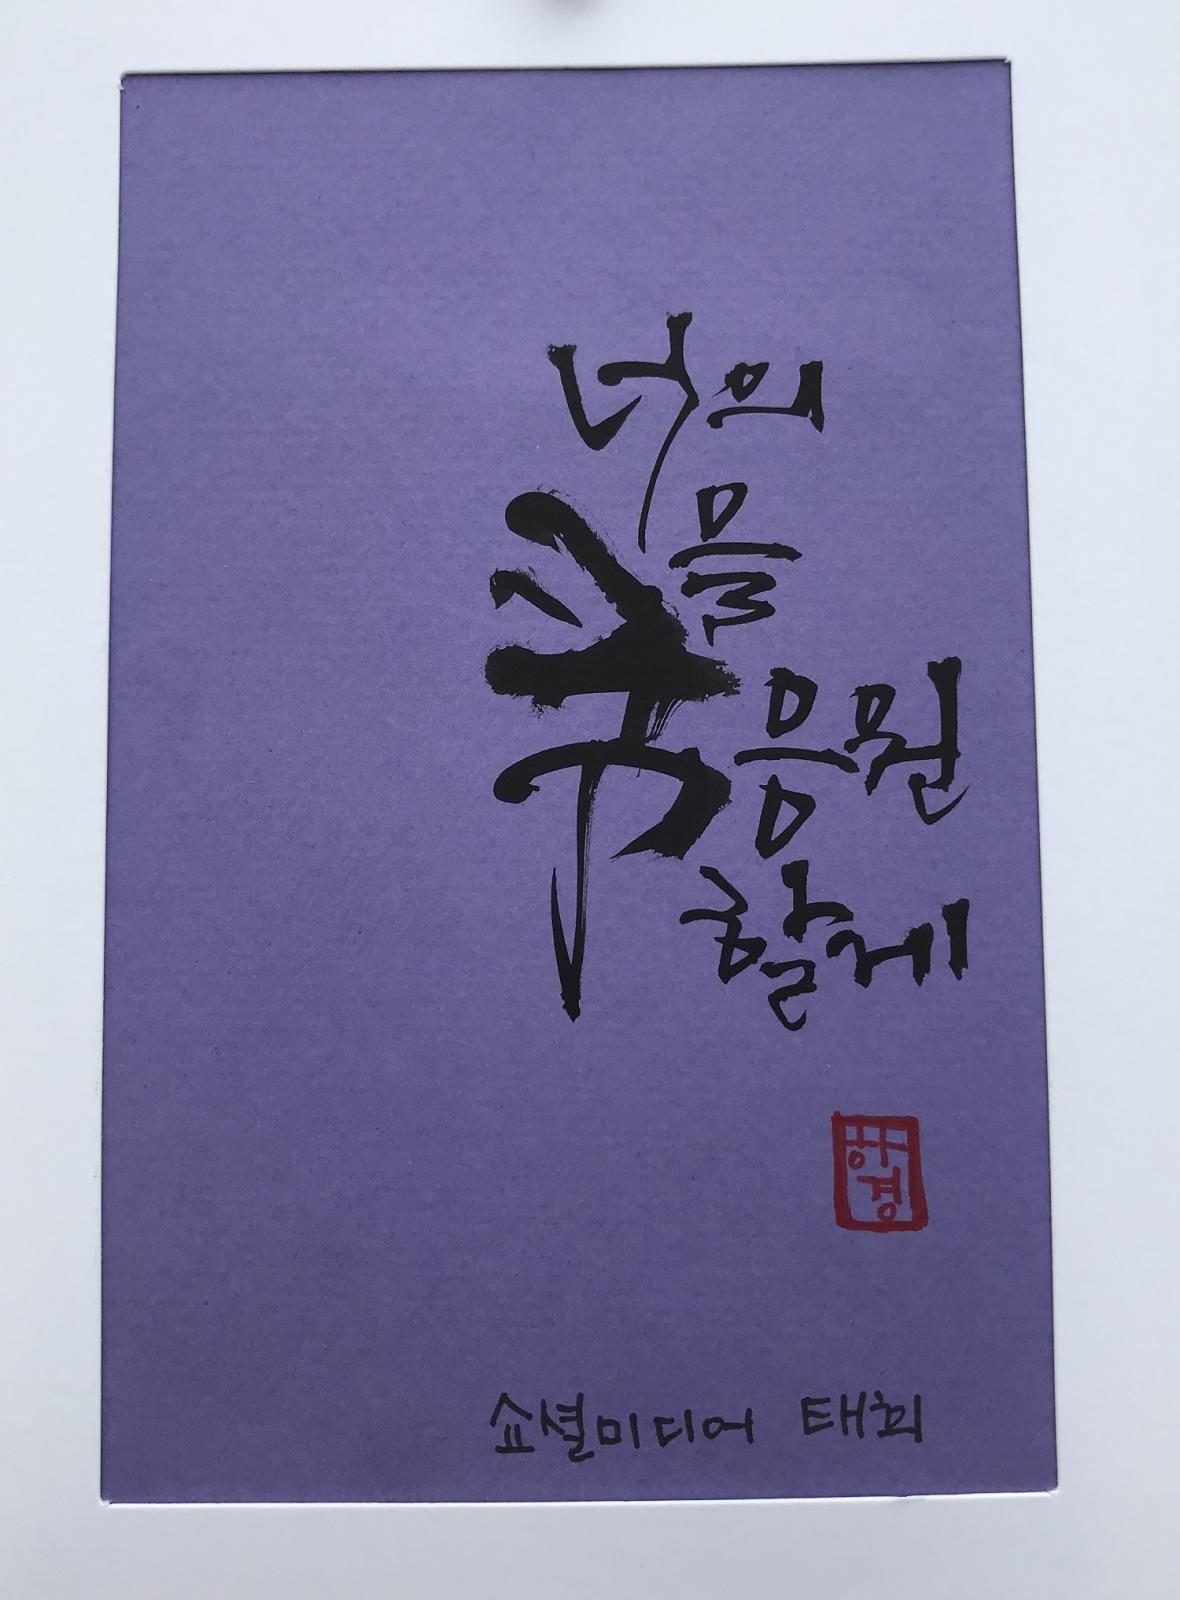 너의
꿈을
응원
할게
쇼셜미디어 태희